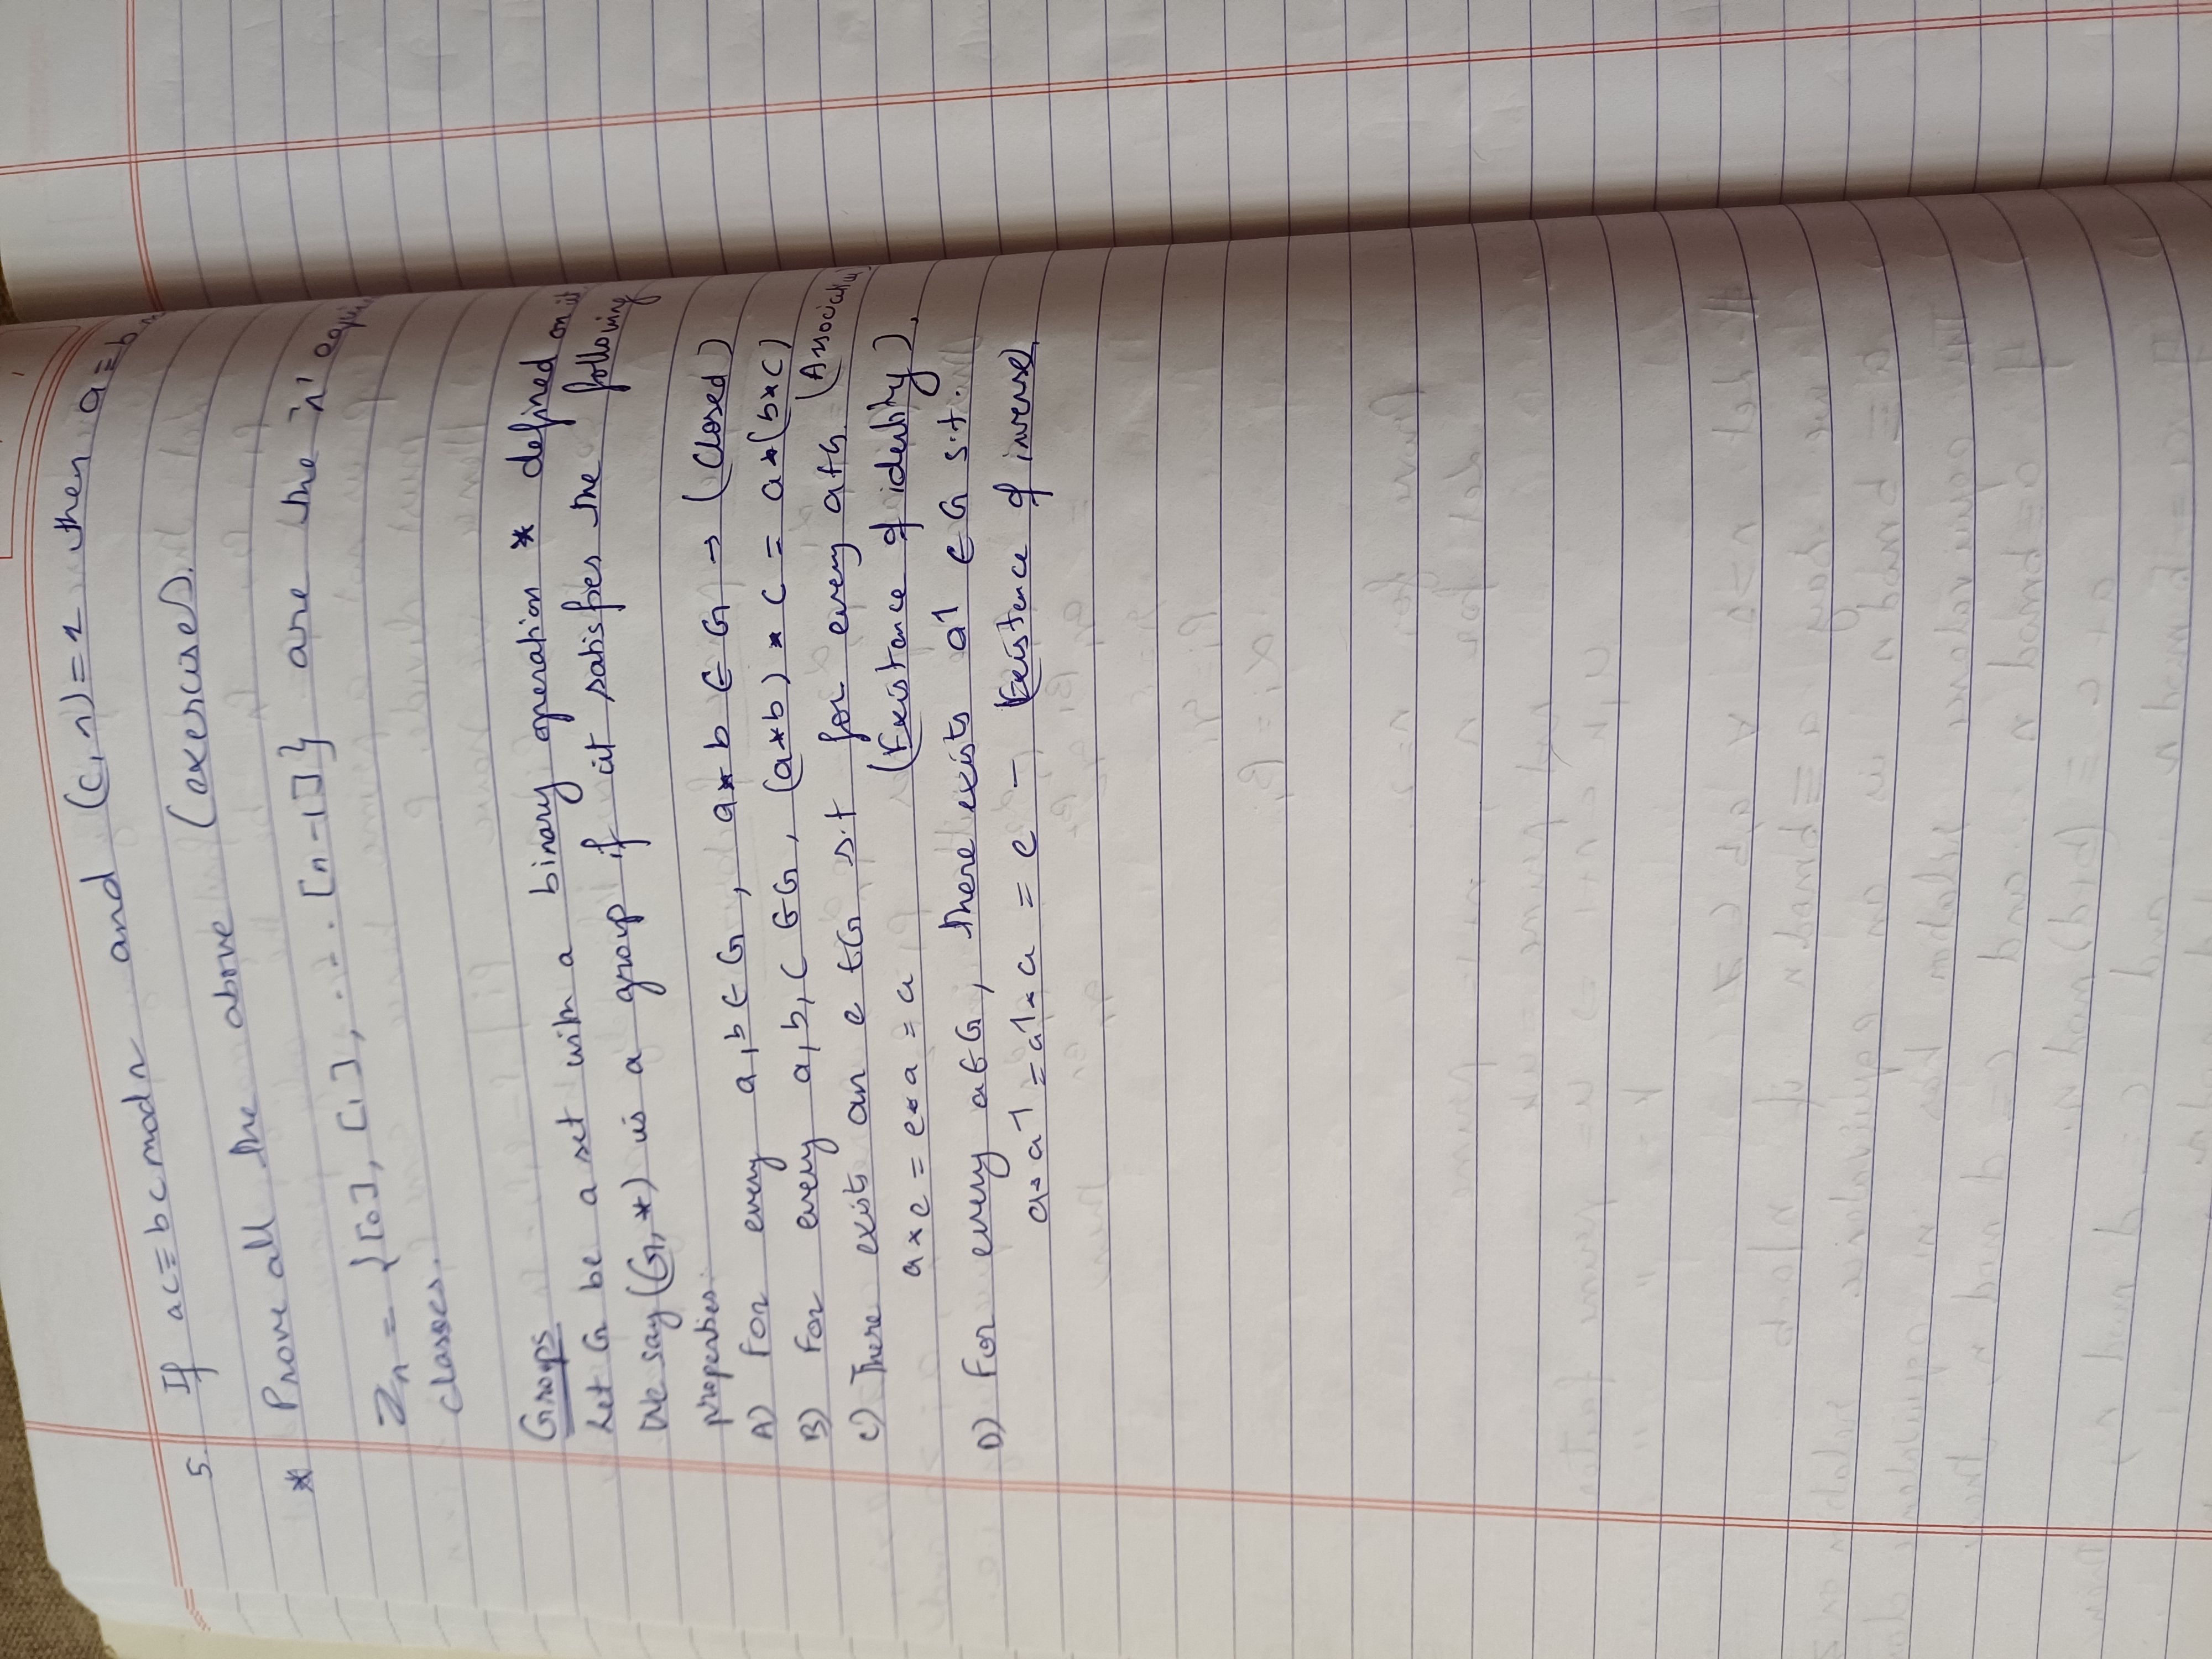 5. If ac ≡ bc mod n and (c, n) = 1 then a ≡ b
Prove all the above (exercise).
* Zn = {[0], [1], ... [n-1]} are the 'n' equi
classes.
Groups
Let G be a set with a binary operation * defined on it
We say (G, *) is a group if it satisfies the following
properties.
A) For every a, b ∈ G, a * b ∈ G → (Closed)
B) For every a, b, c ∈ G, (a * b) * c = a * (b * c)
(Associativity)
C) There exists an e ∈ G s.t for every a ∈ G
a * e = e * a = a (Existance of identity).
D) For every a ∈ G, there exists a1 ∈ G s.t.
a * a1 = a1 * a = e - Existence of inverse.